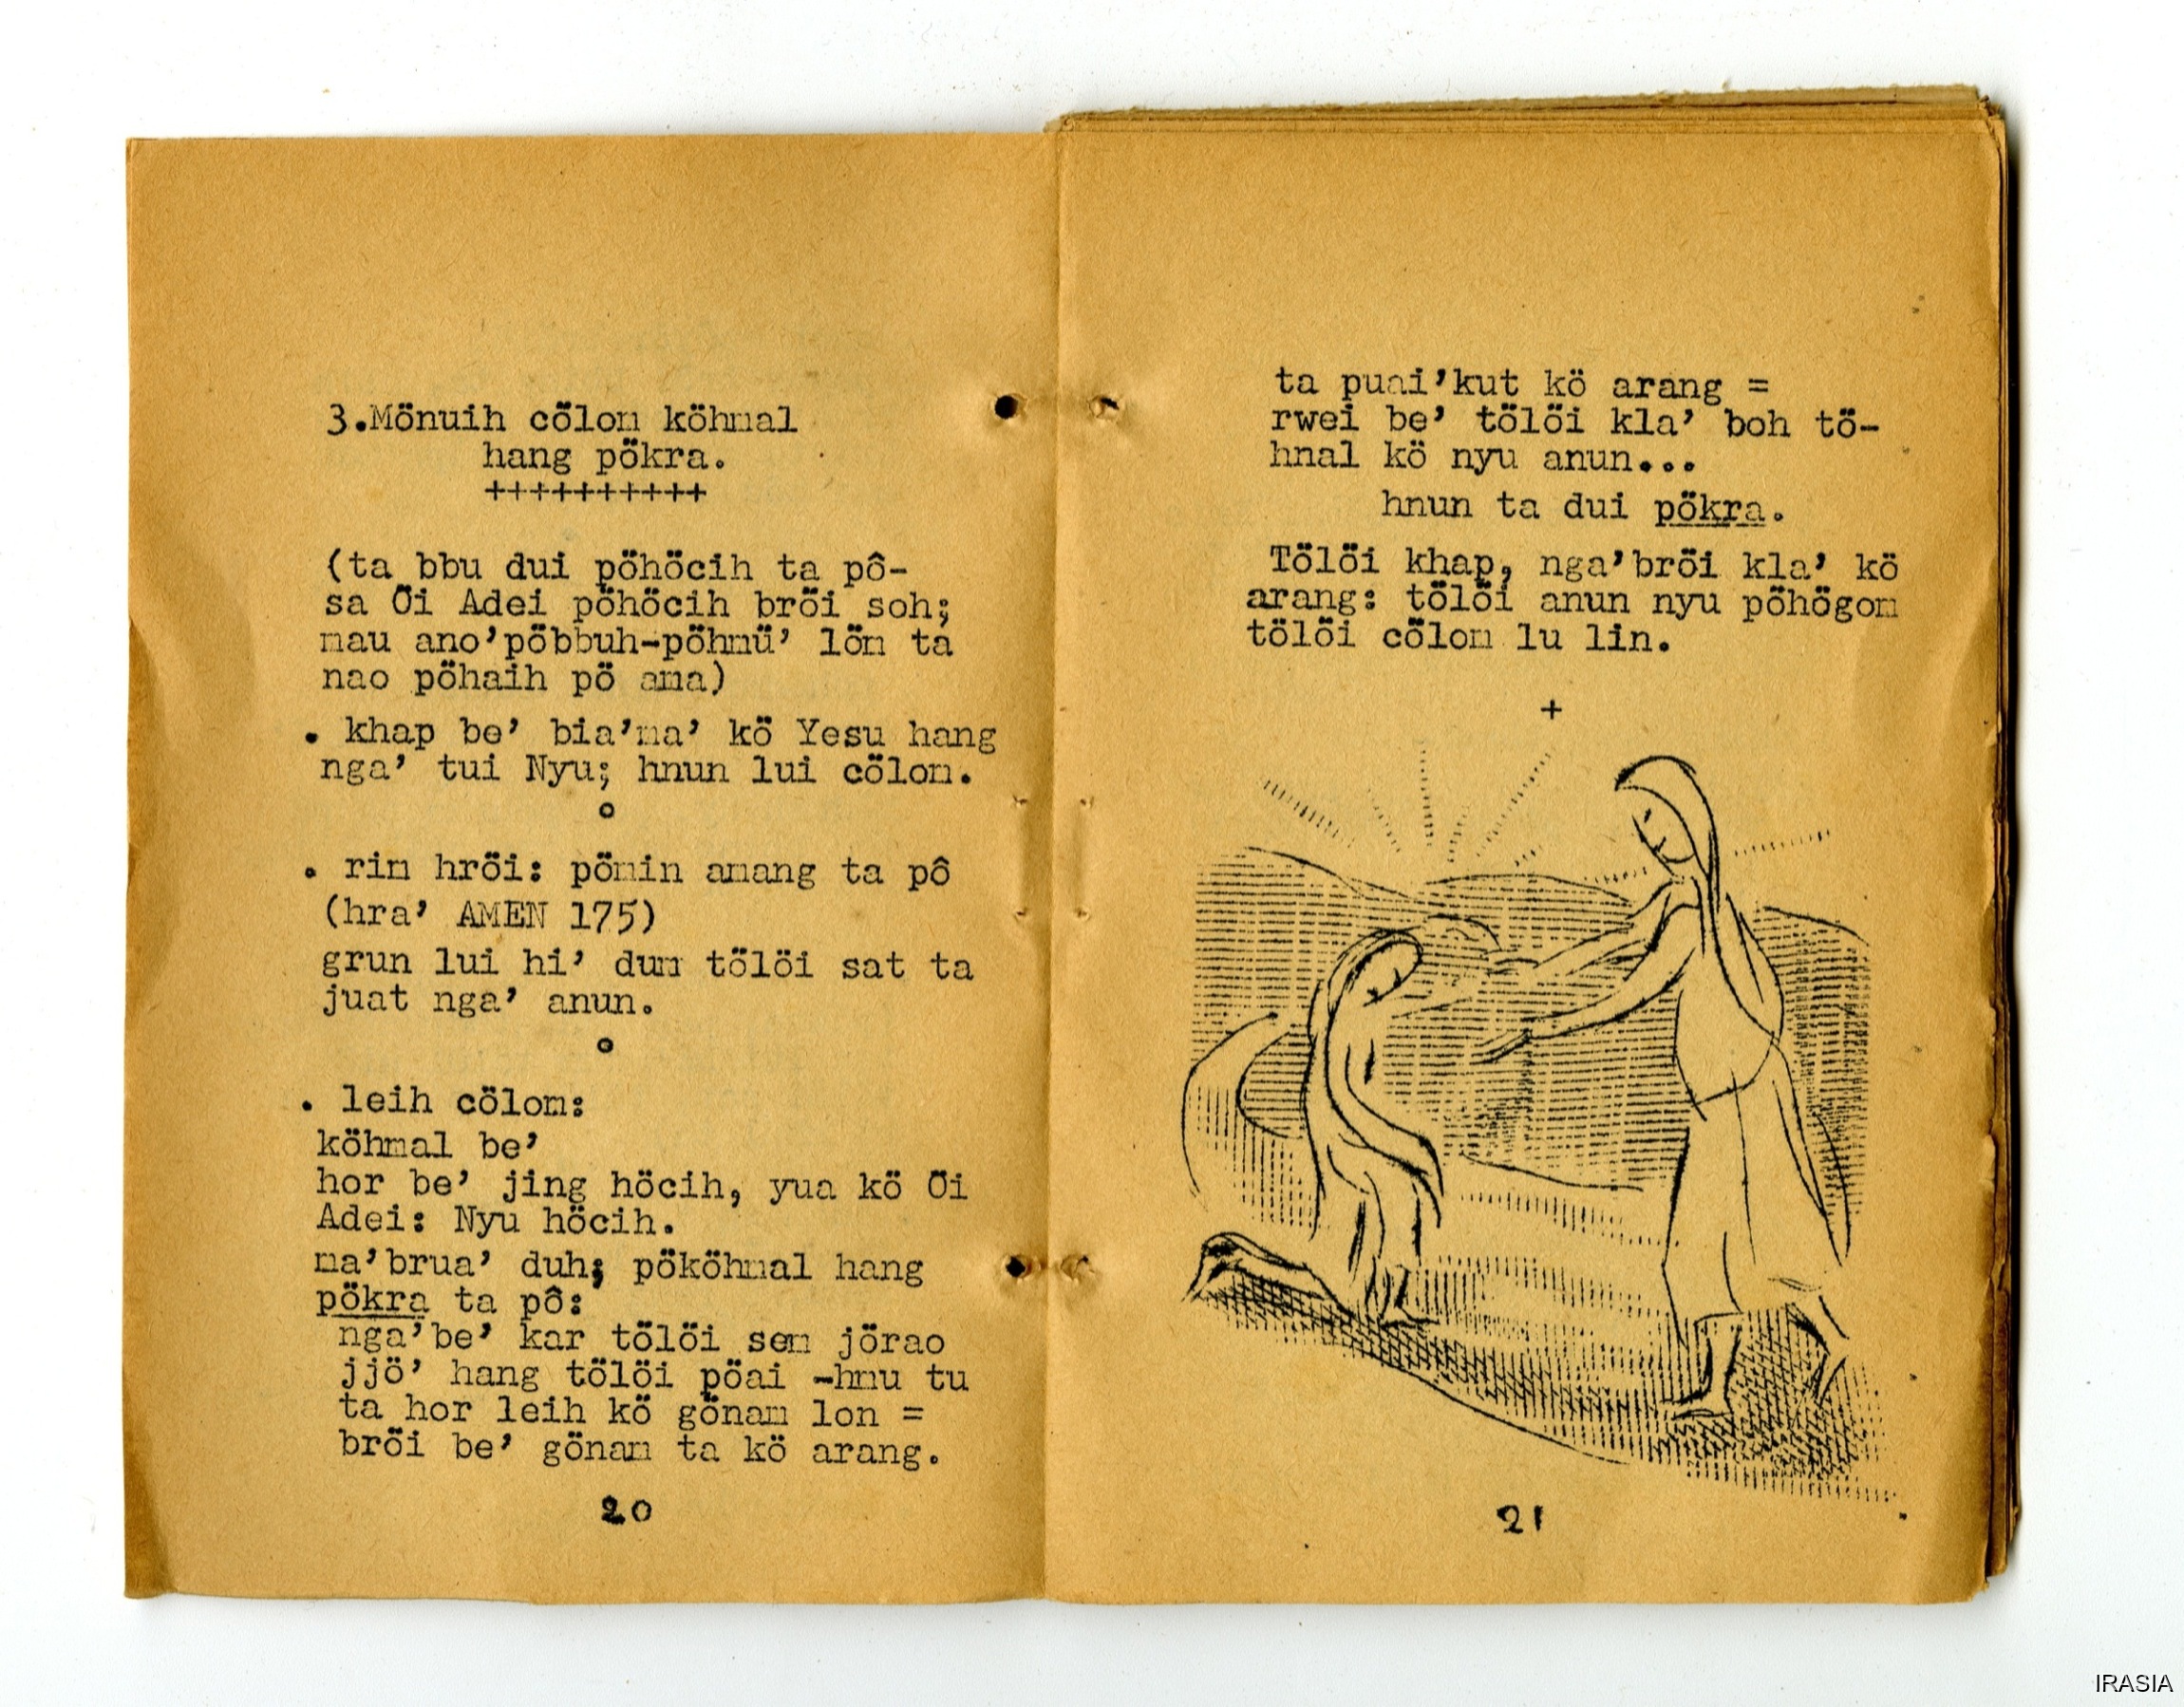 3.Mönuih cŏ̈lom köhmal
hang pŏ̈kra.
++++++++++
(ta bbu dui pŏ̈höcih ta pô-
sa Ŏ̈i Adei pŏ̈höcih brŏ̈i soh;
mau ano'pŏ̈bbuh-pŏ̈hmŭ̈' lŏ̈m ta
nao pŏ̈haih pŏ̈ ama)
. khap be' bia'ma' kŏ̈ Yesu hang
nga' tui Nyu; hnun lui cŏ̈lom.
o
. rim hrŏ̈i: pŏ̈min amang ta pô
(hra' AMEN 175)
grun lui hi' dum tŏ̈lŏ̈i sat ta
juat nga' anun.
o
. leih cŏ̈lom:
kŏ̈hmal be'
hor be' jing hŏ̈cih, yua kŏ̈ Ŏ̈i
Adei: Nyu hŏ̈cih.
ma'brua' duh; pŏ̈kŏ̈hmal hang
pŏ̈kra ta pô:
nga'be' kar tŏ̈lŏ̈i sem jŏ̈rao
jjŏ̈' hang tŏ̈lŏ̈i pŏ̈ai -hmu tu
ta hor leih kŏ̈ gŏ̈nam lon =
brŏ̈i be' gŏ̈nam ta kŏ̈ arang.
20
ta puai'kut kŏ̈ arang =
rwei be' tŏ̈lŏ̈i kla' boh tŏ̈-
hnal kŏ̈ nyu anun...
hnun ta dui pŏ̈kra.
Tŏ̈lŏ̈i khap, nga'brŏ̈i kla' kŏ̈
arang: tŏ̈lŏ̈i anun nyu pŏ̈hŏ̈gom
tŏ̈lŏ̈i cŏ̈lom lu lin.
+
21
IRASIA